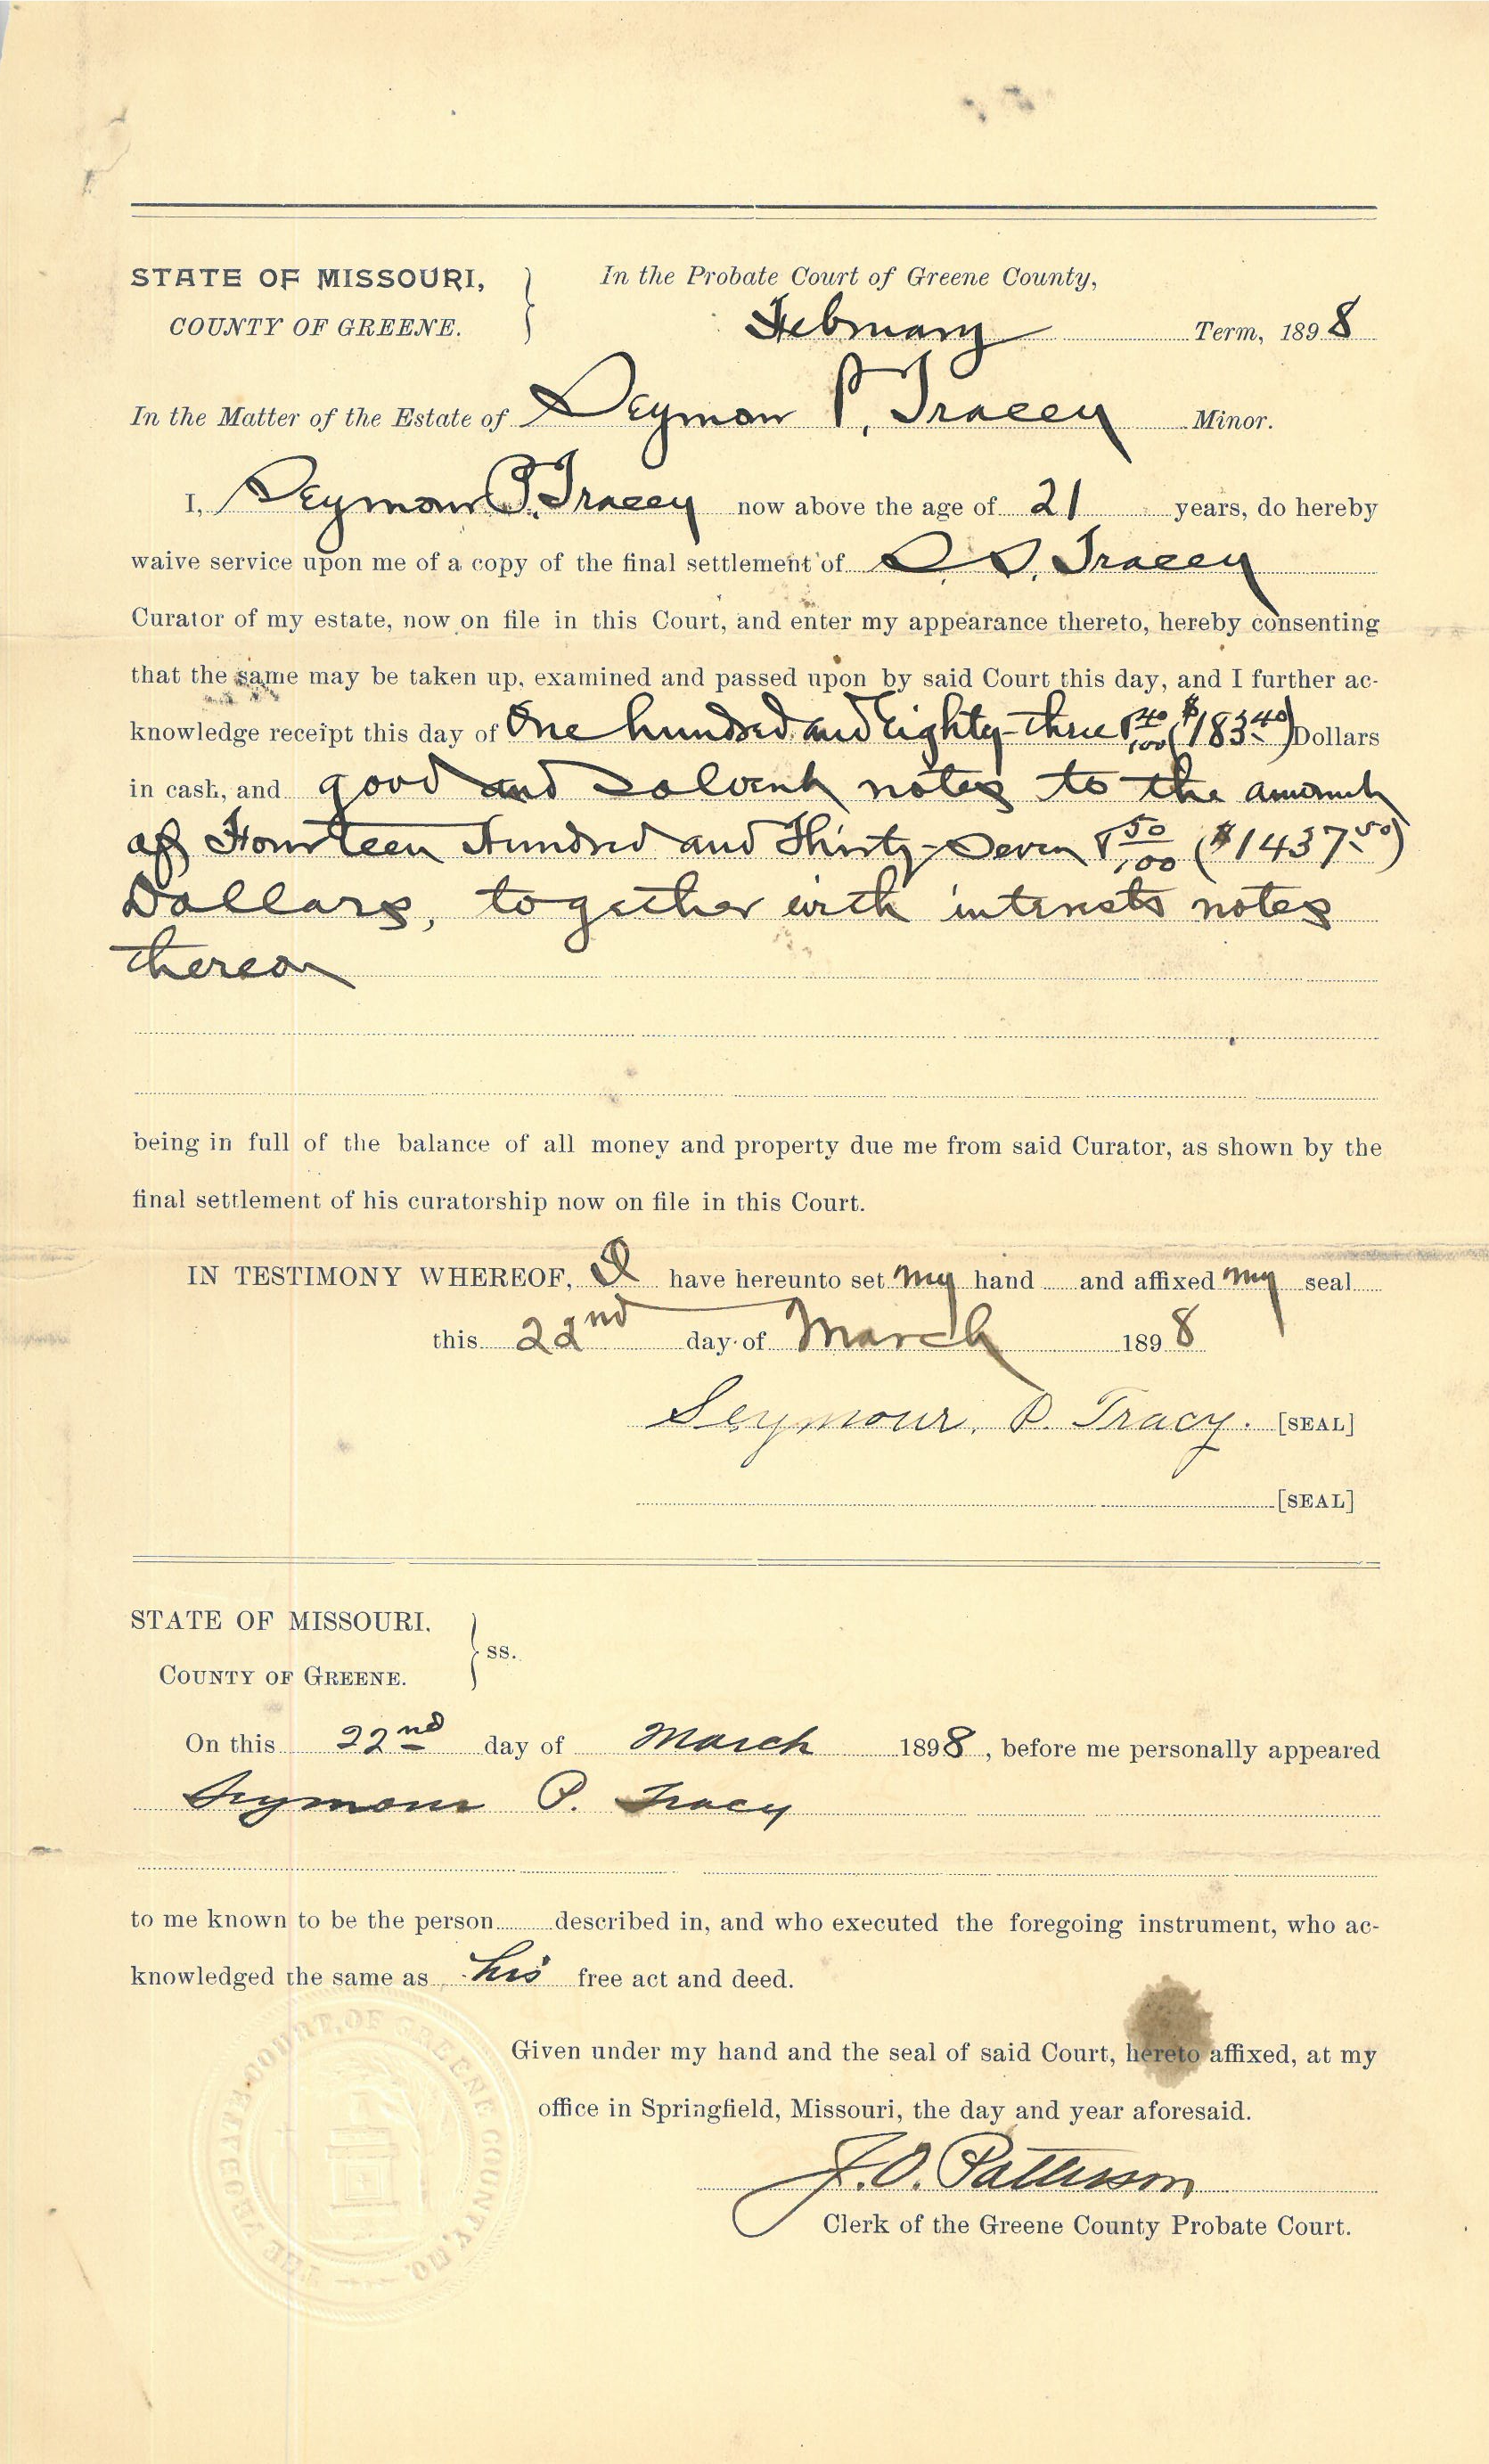 STATE OF MISSOURI,
COUNTY OF GREENE.
In the Probate Court of Greene County,
February Term, 1898
In the Matter of the Estate of Seymour P. Tracey Minor.
I, Seymour P. Tracey now above the age of 21 years, do hereby
waive service upon me of a copy of the final settlement of S. S. Tracey
Curator of my estate, now on file in this Court, and enter my appearance thereto, hereby consenting
that the same may be taken up, examined and passed upon by said Court this day, and I further ac-
knowledge receipt this day of One hundred and Eighty-three & 40/100 ($183.40) Dollars
in cash, and good and solvent notes to the amount
of Fourteen Hundred and Thirty-Seven & 50/100 ($1437.50)
Dollars, together with interests notes
thereon
being in full of the balance of all money and property due me from said Curator, as shown by the
final settlement of his curatorship now on file in this Court.
IN TESTIMONY WHEREOF, I have hereunto set my hand and affixed my seal
this 22nd day of March 1898
Seymour. P. Tracy. [SEAL]
[SEAL]
STATE OF MISSOURI.
COUNTY OF GREENE.
ss.
On this 22nd day of March 1898, before me personally appeared
Seymour P. Tracy
to me known to be the person described in, and who executed the foregoing instrument, who ac-
knowledged the same as his free act and deed.
Given under my hand and the seal of said Court, hereto affixed, at my
office in Springfield, Missouri, the day and year aforesaid.
J. O. Patterson
Clerk of the Greene County Probate Court.
THE PROBATE COURT OF GREENE COUNTY, MO.